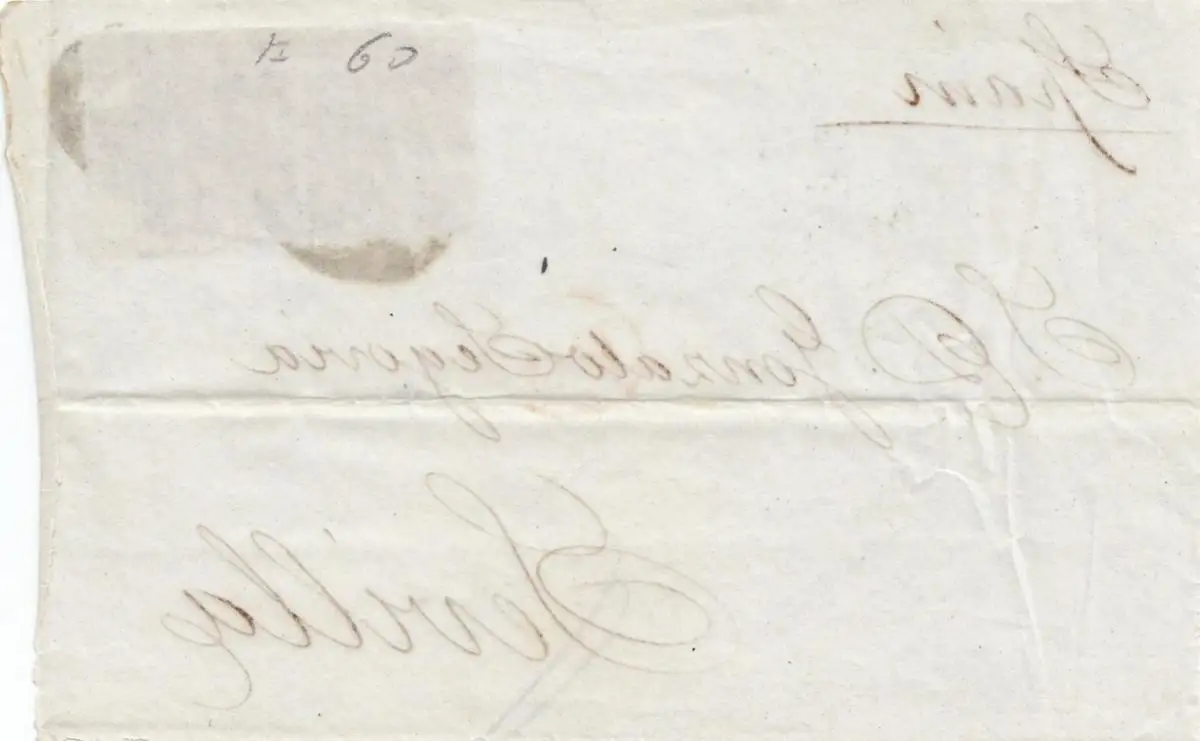 60
Spain
S. D. Gonzalo Segovia
Sevilla